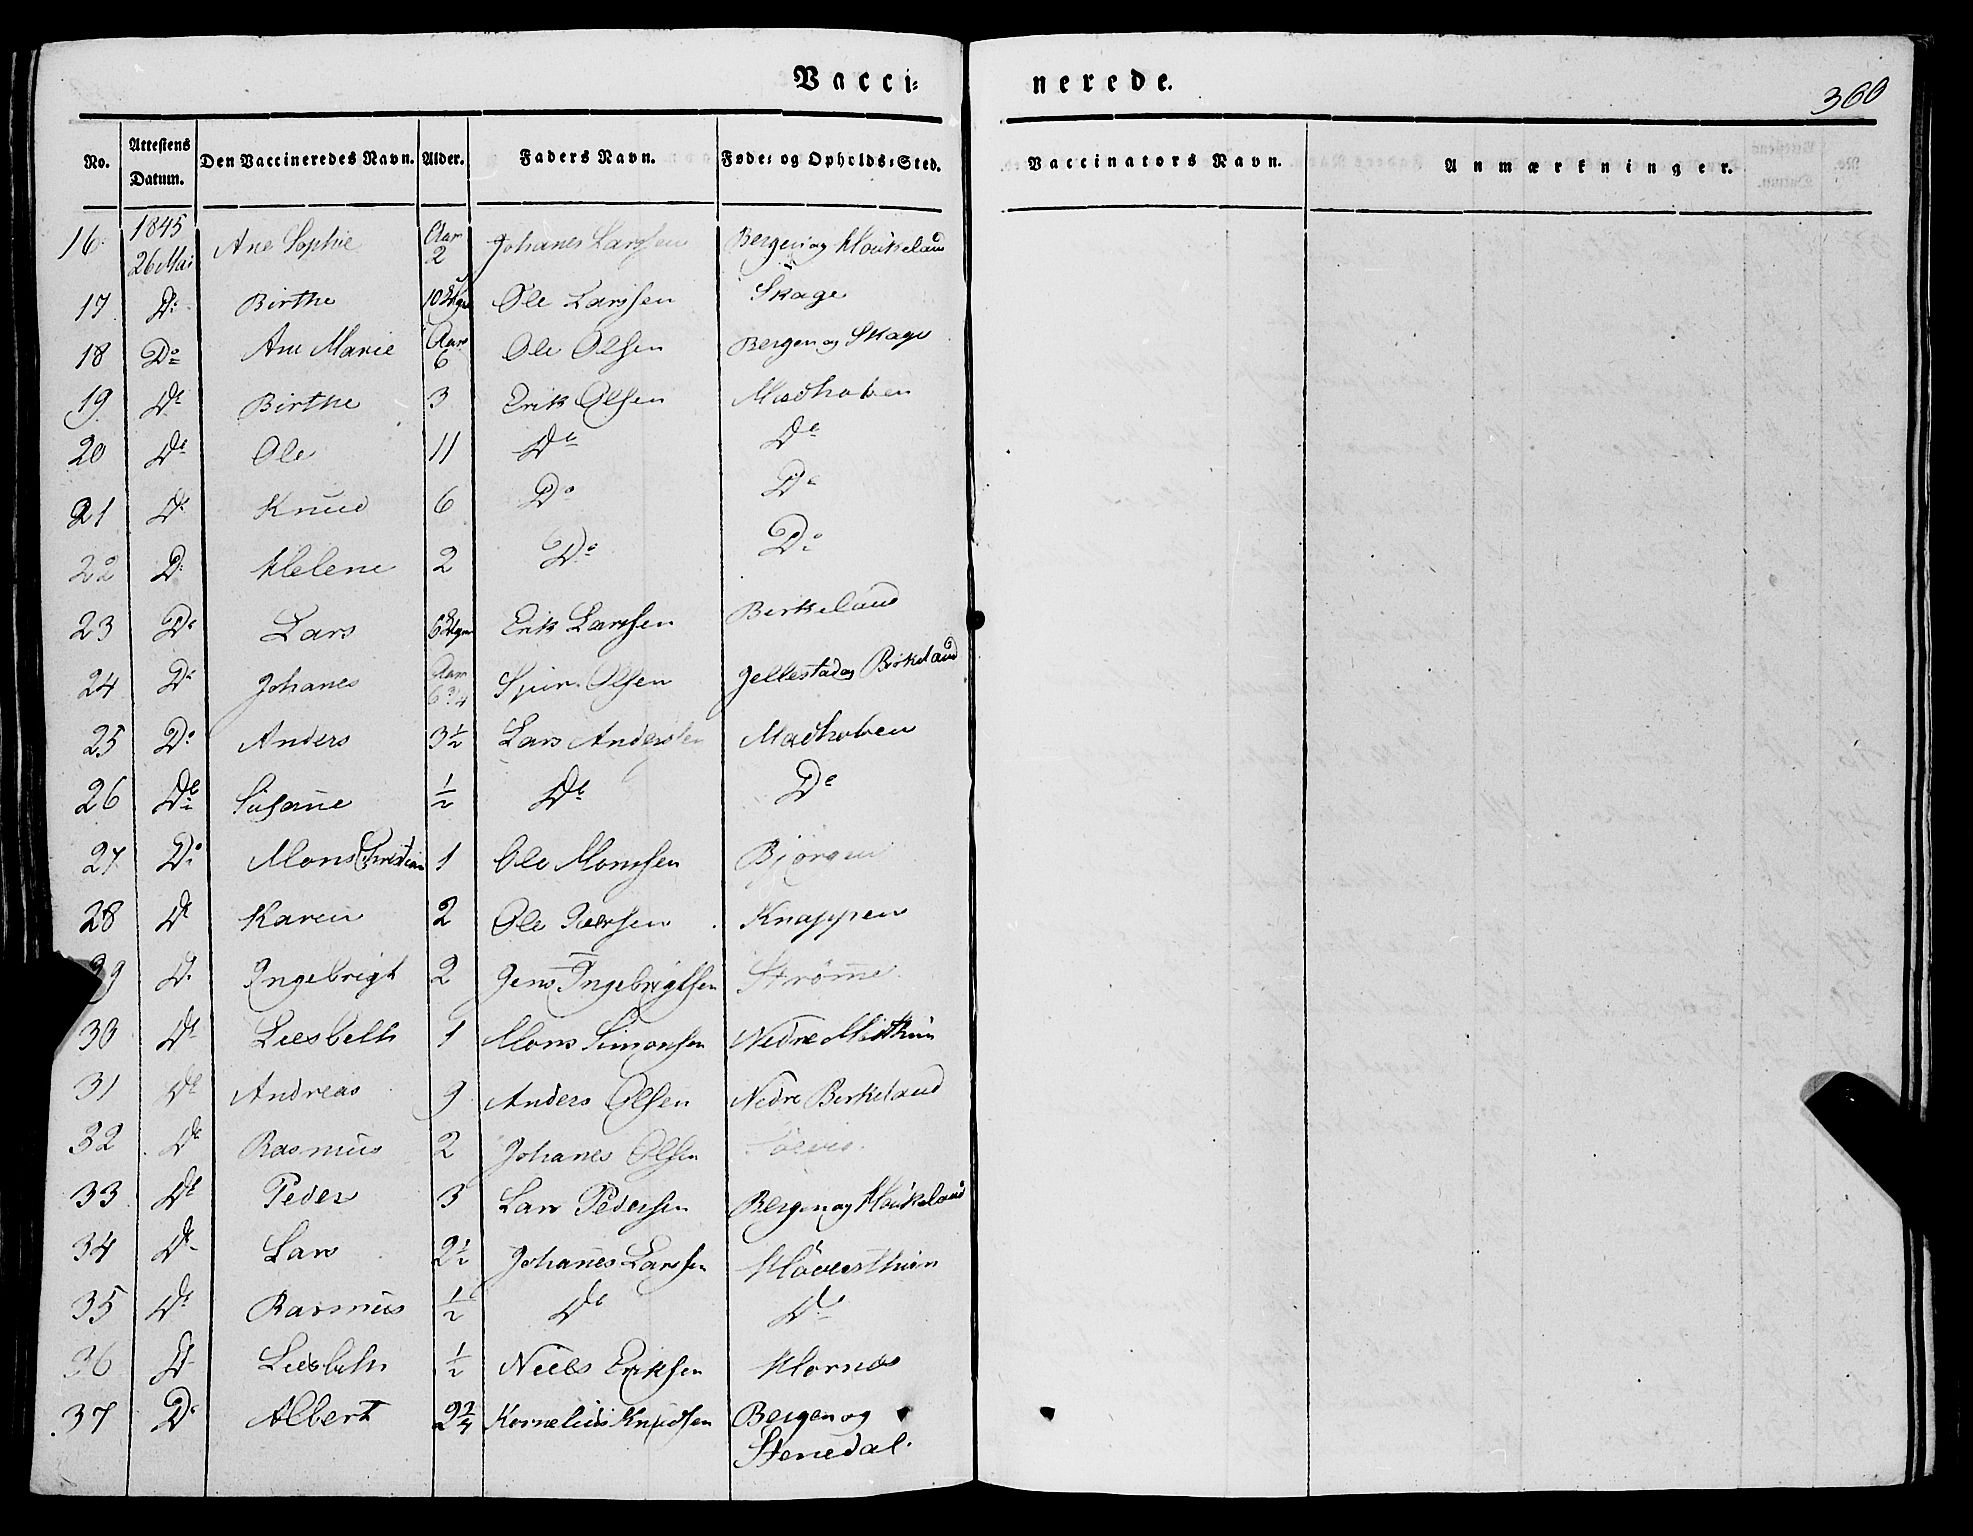 Vacci- nerede.
360
No. Attestens Datum. Den Vaccineredes Navn. Alder. Faders Navn. Føde- og Opholds-Sted. Vaccinators Navn. Anmærkninger.
16. 1845 26 Mai Ane Sophie Aar 2 Johanes Larssen Bergen og Houkeland
17 Do Birthe 10 Ole Larssen Skage
18 Do Ane Marie Aar 6 Ole Olsen Bergen og Skage
19 Do Birthe 3 Erik Olsen Madhoben
20 Do Ole 11 Do Do
21 Do Knud 6 Do Do
22 Do Helene 2 Do Do
23 Do Lars 6 Erik Larssen Birkeland
24 Do Johanes Aar 6 3/4 Olsen Jellestad og Birkeland
25 Do Anders 3½ Lars Anderssen Madhoben
26 Do Susane ½ Do Do
27 Do Mons Christian 1 Ole Monssen Bjørgen
28 Do Karen 2 Ole Knappen
29 D. Ingebrigt 2 Jens Ingebrigtsen Strømme
30 Do Liesbeth 1 Mons Simonsen Nedre Midthun
31 Do Andreas 9 Anders Olsen Nedre Birkeland
32 Do Rasmus 2 Johanes Olsen
33 Do Peder 3 Lars Pedersen Bergen og Houkeland
34 Do Lars 2½ Johanes Larssen
35 Do Rasmus ½ Do Do
36 D Liesbeth ½ Niels Eriksen Hornes
37 Do Albert Kornelius Knudsen Bergen og
Stenedal.